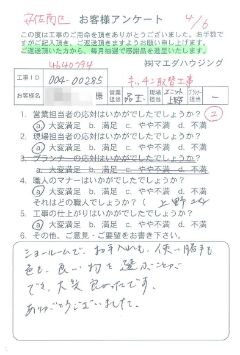 安佐南区 お客様アンケート 4/6
この度は工事のご用命を頂きありがとうございました。お手数で
すがご記入頂き、ご返送頂きますようお願い申し上げます。
ご返送頂いた方から、毎月抽選で感謝品を進呈いたします。
㈱マエダハウジング
工事ID 004-00285 キッチン取替工事
お客様名 様 営業担当 現場担当 プランナー担当 -
1. 営業担当者の応対はいかがでしたでしょうか? ②
a 大変満足 b. 満足 c. やや不満 d. 不満
2. 現場担当者の応対はいかがでしたでしょうか?
a 大変満足 b. 満足 c. やや不満 d. 不満
3. プランナーの応対はいかがでしたでしょうか?
a. 大変満足 b. 満足 c. やや不満 d. 不満
4. 職人のマナーはいかがでしたでしょうか?
a 大変満足 b. 満足 c. やや不満 d. 不満
それはどの職人でしょうか? ( 上野 )
5. 工事の仕上がりはいかがでしたでしょうか?
a 大変満足 b. 満足 c. やや不満 d. 不満
6. その他、ご意見・ご要望をお書き下さい。
ショールームで、お手入れも、使い勝手も
色も、良い物を選ぶことが
でき、大変良かったです。
ありがとうございました。